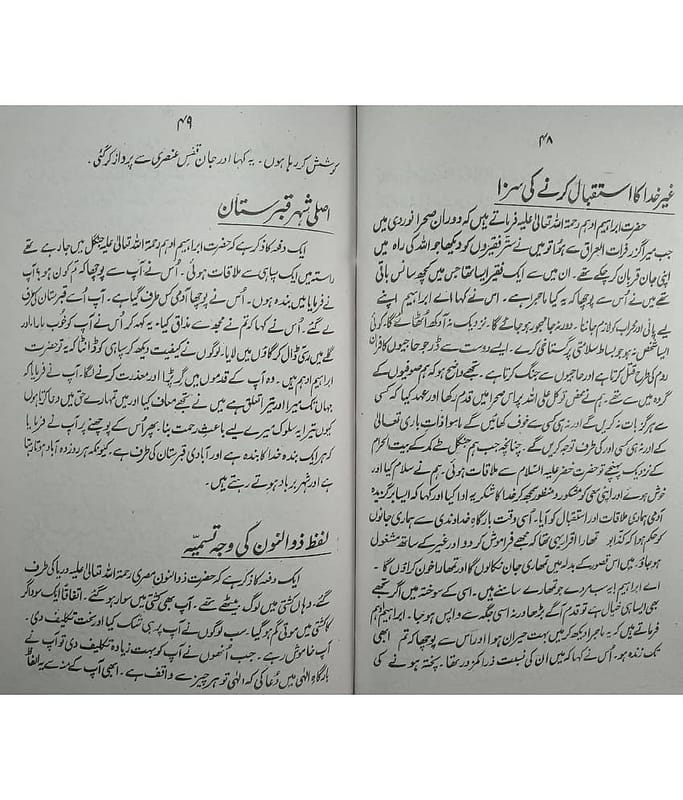 ۴۸
غیر خدا کا استقبال کرنے کی سزا
حضرت ابراہیم ادہم رحمۃ اللہ تعالیٰ علیہ فرماتے ہیں کہ دوران صحرا نوردی میں
جب میرا گزر فرات العراق سے ہوا تو میں نے ستر فقیروں کو دیکھا جو اللہ کی راہ میں
اپنی جان قربان کر چکے تھے۔ ان میں سے ایک فقیر ایسا تھا جس میں کچھ سانس باقی
تھے میں نے اُس سے پوچھا کہ یہ کیا ماجرا ہے۔ اس نے کہا اے ابراہیم اپنے
لیے پانی اور محراب کو لازم جاننا۔ دور نہ جا مہجور ہو جائے گا۔ نزدیک نہ آ دکھ اُٹھائے گا۔ کوئی
ایسا شخص نہ ہو جو بساط سلامتی پر گستاخی کرے۔ ایسے دوست سے ڈر جو حاجیوں کو کافران
روم کی طرح قتل کرتا ہے اور حاجیوں سے جنگ کرتا ہے۔ تجھے واضح ہو کہ ہم صوفیوں کے
گروہ میں سے تھے۔ ہم نے محض توکل علی اللہ پر اس صحرا میں قدم رکھا اور عہد کیا کہ کسی
سے ہرگز بات نہ کریں گے اور نہ ہی کسی سے خوف کھائیں گے ماسوا ذات باری تعالیٰ
کے اور نہ ہی کسی اور کی طرف توجہ کریں گے۔ چنانچہ جب ہم جنگل طے کر کے بیت الحرام
کے نزدیک پہنچے تو حضرت خضر علیہ السلام سے ملاقات ہوئی۔ ہم نے سلام کیا اور
خوش ہوئے اور اپنی سعی کو مشکور و منظور سمجھ کر خدا کا شکریہ ادا کیا اور کہا کہ ایسا برگزیدہ
آدمی ہماری ملاقات اور استقبال کو آیا۔ اُسی وقت بارگاہ خداوندی سے ہماری جانوں
کو حکم ہوا کہ کذابو تمھارا اقرار یہی تھا کہ مجھے فراموش کر دو اور غیر کے ساتھ مشغول
ہو جاؤ۔ میں اس قصور کے بدلہ میں تمھاری جان نکالوں گا اور تمھارا خون گراؤں گا
اے ابراہیم یہ سب مردے جو تمھارے سامنے ہیں۔ اسی کے سوختہ ہیں اگر تجھے
بھی ایسا ہی خیال ہے تو قدم آگے بڑھا ورنہ اسی جگہ سے واپس ہو جا۔ ابراہیم ادہم
فرماتے ہیں کہ یہ ماجرا دیکھ کر میں بہت حیران ہوا اور اس سے پوچھا کہ تم ابھی
تک زندہ ہو۔ اُس نے کہا کہ میں ان کی نسبت ذرا کمزور تھا۔ پختہ ہونے کی
۴۹
کوشش کر رہا ہوں۔ یہ کہا اور جان قفس عنصری سے پرواز کر گئی۔
اصلی شہر قبرستان
ایک دفعہ کا ذکر ہے کہ حضرت ابراہیم ادہم رحمۃ اللہ تعالیٰ علیہ جنگل میں جا رہے تھے
راستہ میں ایک سپاہی سے ملاقات ہوئی۔ اُس نے آپ سے پوچھا کہ تم کون ہو؟ آپ
نے فرمایا میں بندہ ہوں۔ اُس نے پوچھا آدمی کس طرف گیا ہے۔ آپ اُسے قبرستان کیطرف
لے گئے۔ اُس نے کہا کہ تم نے مجھ سے مذاق کیا۔ یہ کہہ کر اُس نے آپ کو خوب مارا، اور
گلے میں رسی ڈال کر گاؤں میں لایا۔ لوگوں نے کیفیت دیکھ کر سپاہی کو ڈانٹا کہ یہ تو حضرت
ابراہیم ادہم ہیں۔ وہ آپ کے قدموں میں گر پڑا اور معذرت کرنے لگا۔ آپ نے فرمایا کہ
جہاں تک میرا اور تیرا تعلق ہے میں نے تجھے معاف کیا اور میں تمہارے حق میں دعا کرتا ہوں
کیوں تیرا یہ سلوک میرے لیے باعث رحمت بنا۔ پھر اس کے پوچھنے پر آپ نے فرمایا
کہ ہر ایک بندہ خدا کا بندہ ہے اور آبادی قبرستان کی طرف ہے۔ کیونکہ ہر روز وہ آباد ہوتا رہتا
ہے اور شہر برباد ہوتے رہتے ہیں۔
لفظ ذوالنون کی وجہ تسمیہ
ایک دفعہ کا ذکر ہے کہ حضرت ذوالنون مصری رحمۃ اللہ تعالیٰ علیہ دریا کی طرف
گئے، وہاں کشتی میں لوگ بیٹھے تھے۔ آپ بھی کشتی میں سوار ہو گئے۔ اتفاقاً ایک سوداگر
کا کشتی میں موتی گم ہو گیا۔ سب لوگوں نے آپ پر ہی شک کیا اور سخت تکلیف دی۔
آپ خاموش رہے۔ جب اُنھوں نے آپ کو بہت زیادہ تکلیف دی تو آپ نے
بارگاہ الٰہی میں دُعا کی کہ الٰہی تو ہر چیز سے واقف ہے۔ ابھی آپ کے منہ سے یہ الفاظ